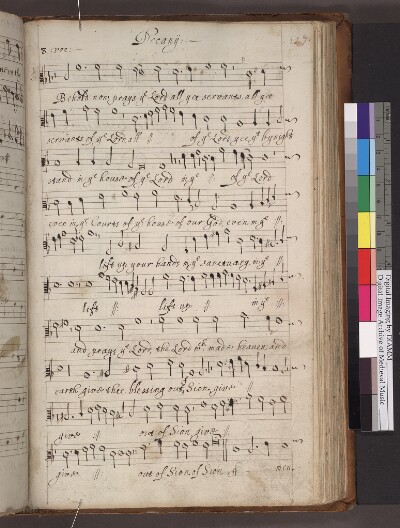 Decany
8 voc:
Behold now prayse ye Lord all yee servants all yee
servants of ye Lord all :||: of ye Lord yee yt by night
stand in ye house of ye Lord in ye :||: of ye Lord
even in ye Courts of ye house of our God even in ye :||:
lift up your hands in ye sanctuary in ye :||:
lift :||: lift up :||: in ye :||:
and prayse ye Lord, the Lord yt made heaven and
earth give thee blessing out of Sion give :||:
give :||: out of Sion give :||:
give :||: out of Sion of Sion :||: men
Digital Imaging by DIAMM
Digital Image Archive of Medieval Music